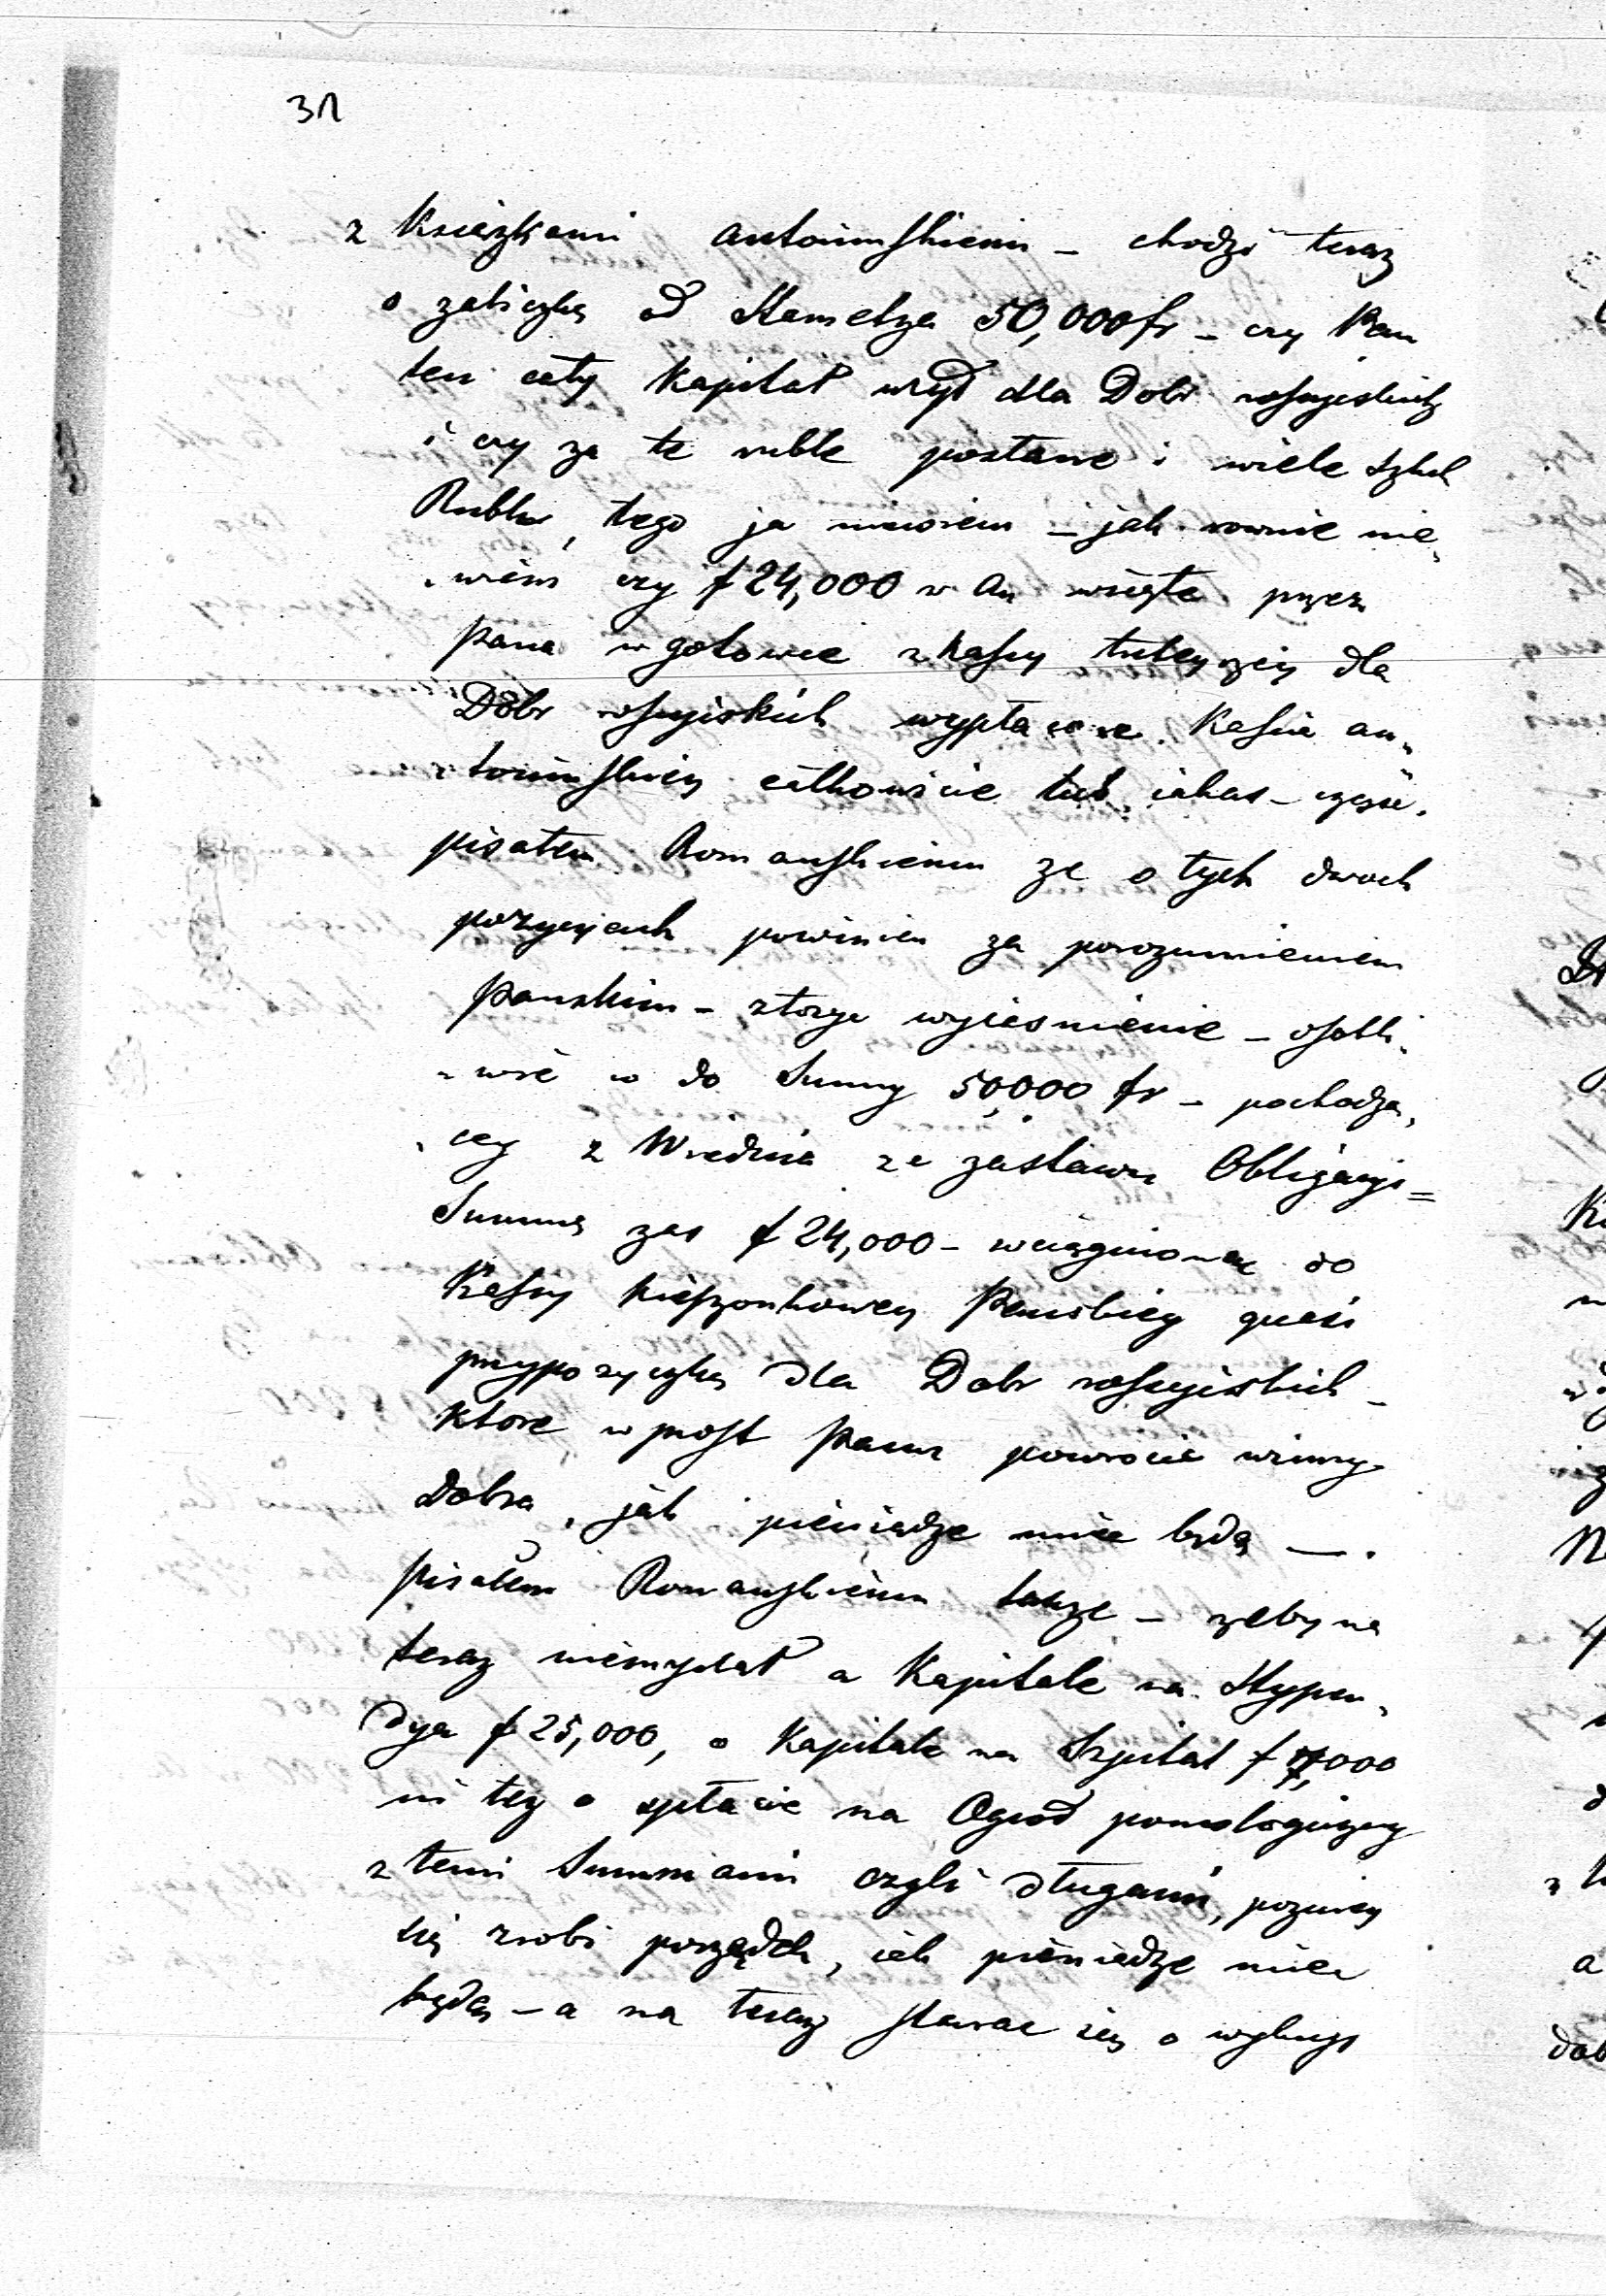 31
z Książkami antonińskiemi – chodzi teraz
o zaliczkę od Stametza 50,000 fr – czy Pan
ten cały Kapitał wziął dla Dobr rossyiskich
i czy za te ruble posłane i wiele sztuk
Rubli, tego ja niewiem – jak rownie nie„
„wiem czy f 24,000 w. au wzięte przez
Pana w gotowce z Kassy tuteyszey dla
Dobr rossyiskich wypłacone Kassie an„
„tonińskiey całkowicie lub iakas – część.
pisałem Romanskiemu ze o tych dwoch
pozycyach powinien za porozumieniem
Panskim – złozyc wyiasnienie – osobli„
„wie co do Summy 50000 fr – pochodzą„
„cey z Wiednia za zastawu Obligacyi =
Summę zas f 24,000 – wciągnionę do
Kassy kieszonkowey Panskiey quasi
przypozyczkę dla Dobr rossyiskich –
Ktore wprost Panu powrocic winny
Dobra, jak pieniądze miec będą —.
Pisałem Romanskiemu takze – zeby na
teraz niemyslał o Kapitale na Stypen„
dya f 25,000, o Kapitale na Szpital f 000
ni tez o spłacie na Ogrod pomologiczny
z temi Summami czyli długami, pozniey
się zrobi porządek, iak pieniądze miec
będą – a na teraz starac się o